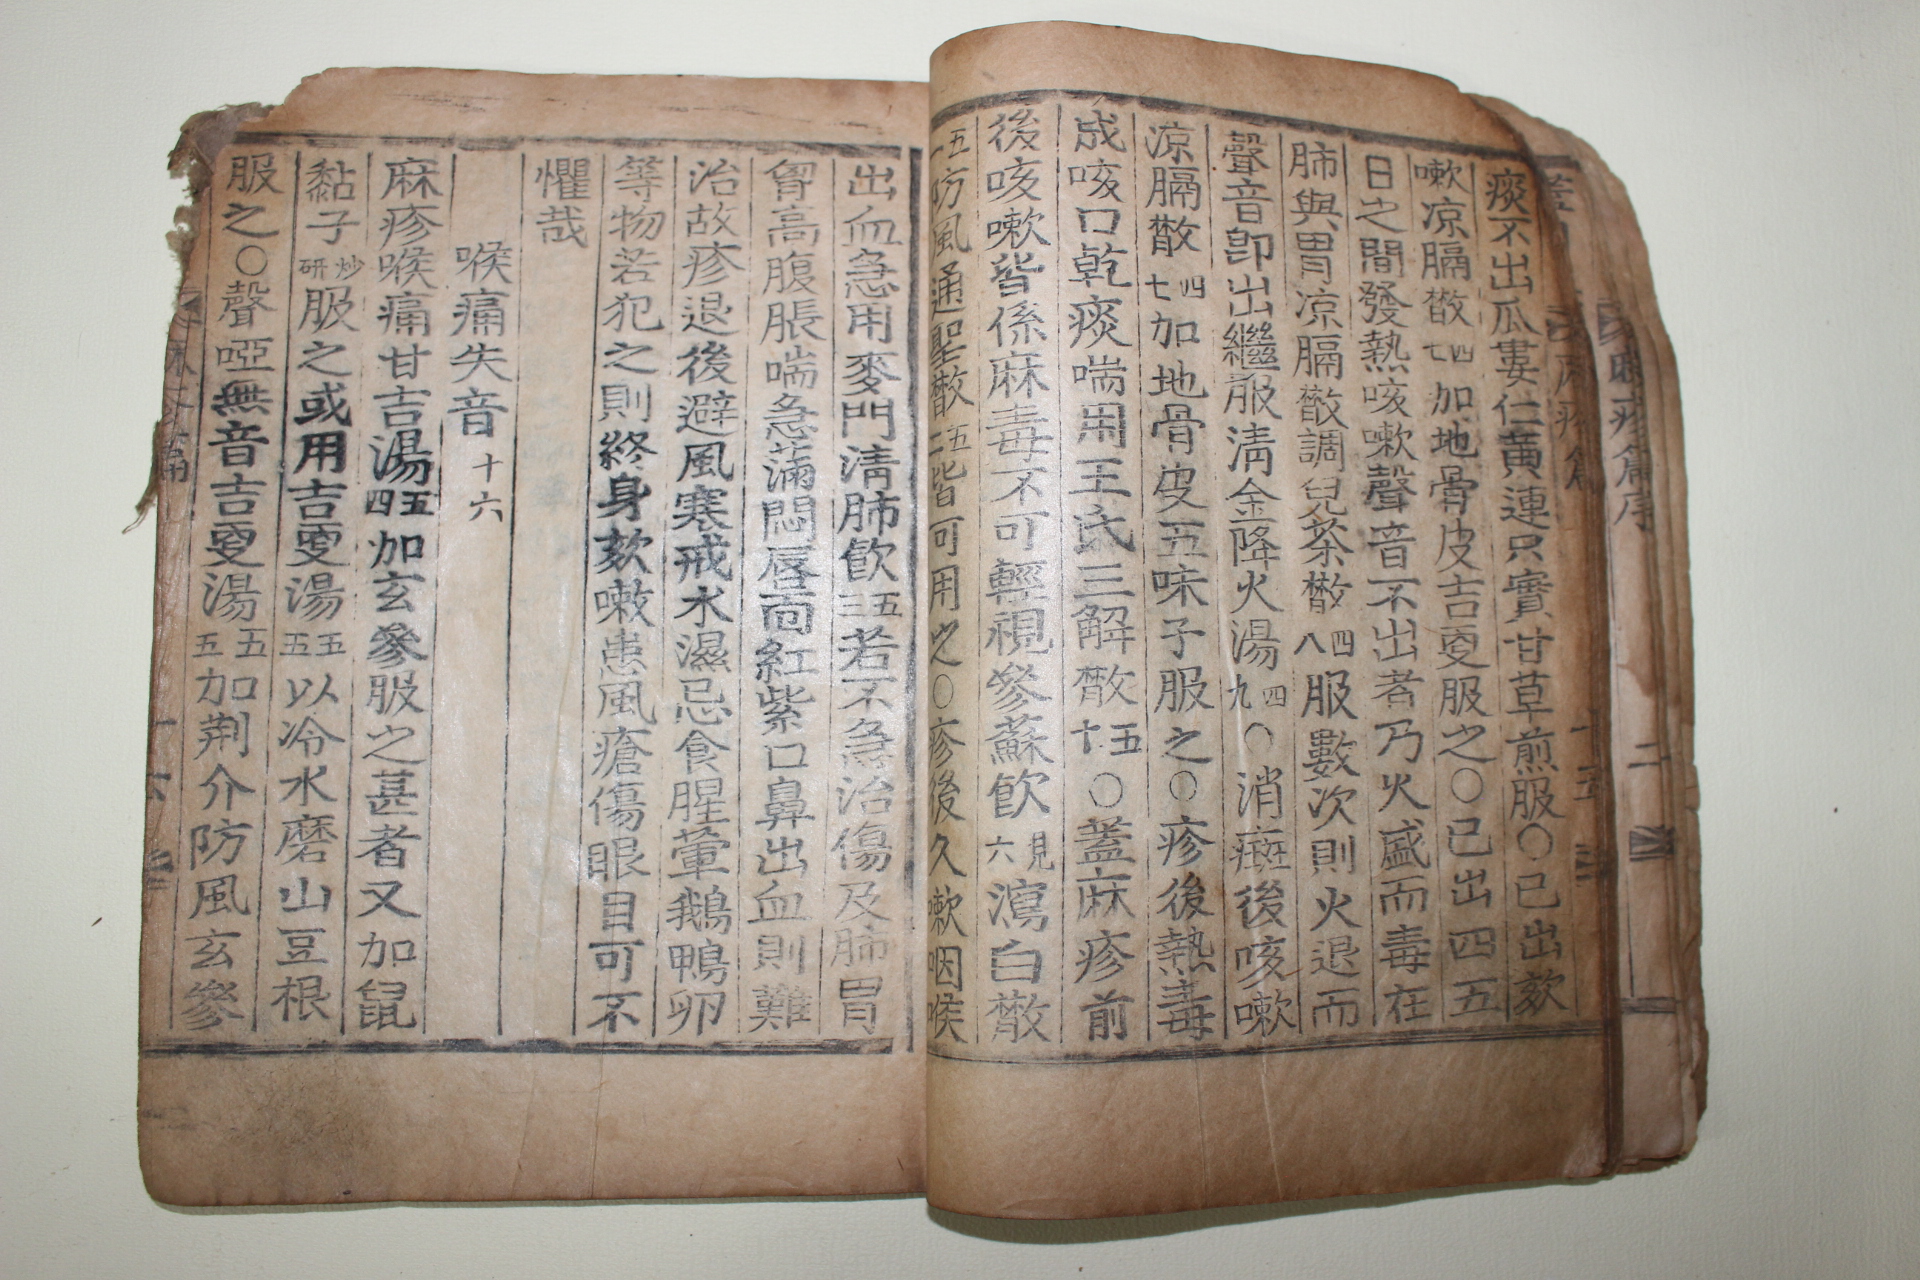 痰不出瓜蔞仁黃連只實甘草煎服○已出欬
嗽凉膈散四七加地骨皮吉更服之○已出四五
日之間發熱咳嗽聲音不出者乃火盛而毒在
肺與胃凉膈散調兒茶散四八服數次則火退而
聲音卽出繼服淸金降火湯四九○消癍後咳嗽
凉膈散四七加地骨皮五味子服之○疹後熱毒
成咳口乾痰喘用王氏三解散五十○蓋麻疹前
後咳嗽皆係麻毒不可輕視參蘇飮見六瀉白散
五一防風通聖散五二皆可用之○疹後久嗽咽喉
出血急用麥門淸肺飮五三若不急治傷及肺胃
胷高腹脹喘急滿悶唇面紅紫口鼻出血則難
治故疹退後避風寒戒水濕忌食腥葷鵝鴨卵
等物若犯之則終身欬嗽患風瘡傷眼目可不
懼哉
喉痛失音十六
麻疹喉痛甘吉湯五四加玄參服之甚者又加鼠
黏子炒研服之或用吉更湯五五以冷水磨山豆根
服之○聲啞無音吉更湯五五加荆介防風玄參
麻疹篇序
二